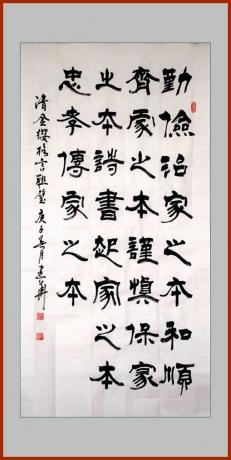 勤儉治家之本和順
齊家之本謹慎保家
之本詩書起家之本
忠孝傳家之本
清金纓格言聯璧 庚子月建華